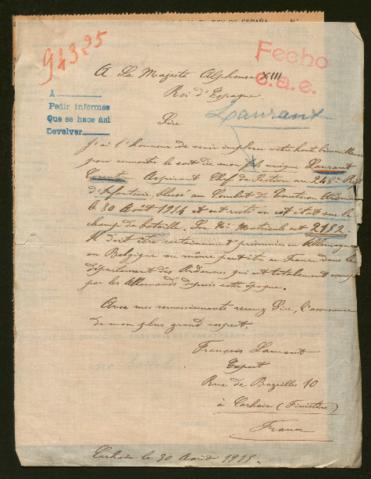 94325
Fecho
e.a.e.
A Sa Majesté Alphonse XIII
Roi d'Espagne
A
Pedir informes
Que se hace así
Devolver
Sire
Laurant
J'ai l'honneur de venir implorer votre haute
pour connaître le sort de mon fils unique Laurant
Aspirant Chef de Section au 248e Rég
d'Infanterie blessé au Combat de
le 30 Août 1914 et est resté en cet état sur le
champ de bataille. Son No Matricule est 2152
Il doit être certainement prisonnier en Allemagne
ou Belgique ou même peut être en France dans le
département des Ardennes qui est totalement
par les Allemands depuis cette époque.
Avec mes remerciements recevez Sire, l'assurance
de mon plus grand respect.
François Laurant
Expert
Rue de Bazeilles 10
à Carhaix (Finistère)
France
Carhaix le 30 Août 1915.